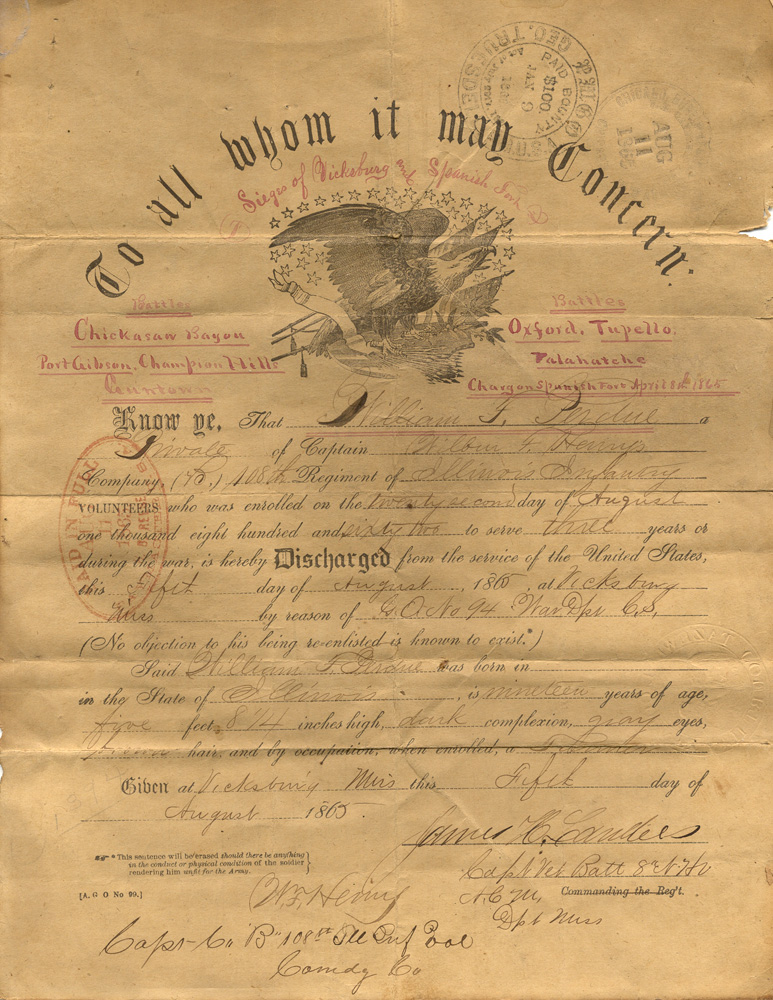 GEO. TRUESDE
PAID BOUNTY
$100.
JAN 9
AUG
11
To all whom it may Concern:
Sieges of Vicksburg and Spanish Fort
Battles
Chickasaw Bayou
Port Gibson, Champion Hills
Guntown
Battles
Oxford, Tupello,
Talahatche
Charg on Spanish Fort April 8th 1865
Know ye, That William F. Perdue a
Private of Captain Wilbur F. Henry
Company, (B,) 108th Regiment of Illinois Infantry
VOLUNTEERS who was enrolled on the twenty second day of August
one thousand eight hundred and sixty two to serve three years or
during the war, is hereby Discharged from the service of the United States,
this Fifth day of August, 1865, at Vicksburg
Miss by reason of G.O. No 94 War Dpt C.S.
(No objection to his being re-enlisted is known to exist.*)
Said William F. Perdue was born in
in the State of Illinois, is nineteen years of age,
five feet 8 1/4 inches high, dark complexion, gray eyes,
hair, and by occupation, when enrolled, a
Given at Vicksburg Miss this Fifth day of
August 1865.
PAID IN FULL
James H.
* This sentence will be erased should there be anything
in the conduct or physical condition of the soldier
rendering him unfit for the Army.
Capt Vet Batt
A.C.M. Commanding the Reg't.
Dpt Miss
[A. G O No 99.]
W.F. Henry
Capt Co "B" 108th Ill Inf Vol
Comdg Co